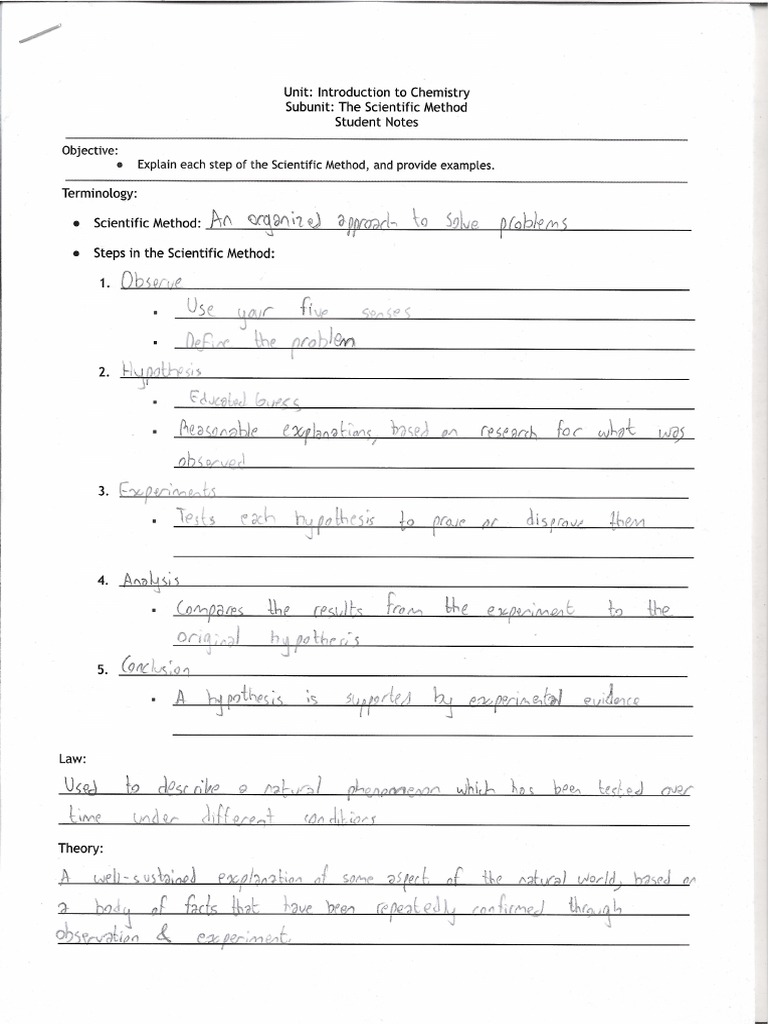 Unit: Introduction to Chemistry
Subunit: The Scientific Method
Student Notes
Objective:
• Explain each step of the Scientific Method, and provide examples.
Terminology:
• Scientific Method: An organized approach to solve problems
• Steps in the Scientific Method:
1. Observe
▪ Use your five senses
▪ Define the problem
2. Hypothesis
▪ Educated Guess
▪ Reasonable explanations, based on research for what was
observed
3. Experiments
▪ Tests each hypothesis to prove or disprove them
4. Analysis
▪ Compares the results from the experiment to the
original hypothesis
5. Conclusion
▪ A hypothesis is supported by experimental evidence
Law:
Used to describe a natural phenomenon which has been tested over
time under different conditions
Theory:
A well-sustained explanation of some aspect of the natural world, based on
a body of facts that have been repeatedly confirmed through
observation & experiment.